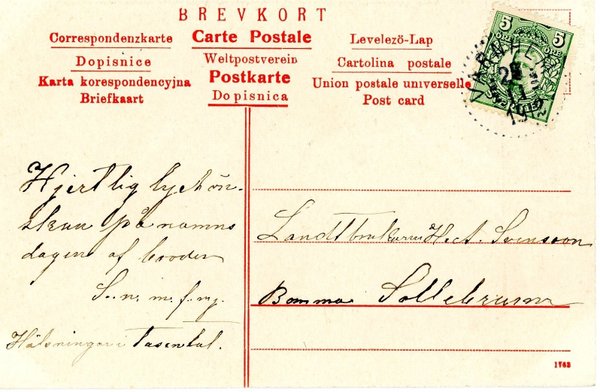 BREVKORT
Correspondenzkarte
Carte Postale
Levelezö-Lap
Dopisnice
Weltpostverein
Cartolina postale
Karta korespondencyjna
Postkarte
Union postale universelle
Briefkaart
Dopisnica
Post card
5 5
VARNHEM
1912
Hjertlig lyckön-
skan på namns
dagen af brodern
S. n. m. f. mg.
Hälsningar i Tasental.
Landtbrukaren H. A. Svensson
Bomma Sollebrunn
1762